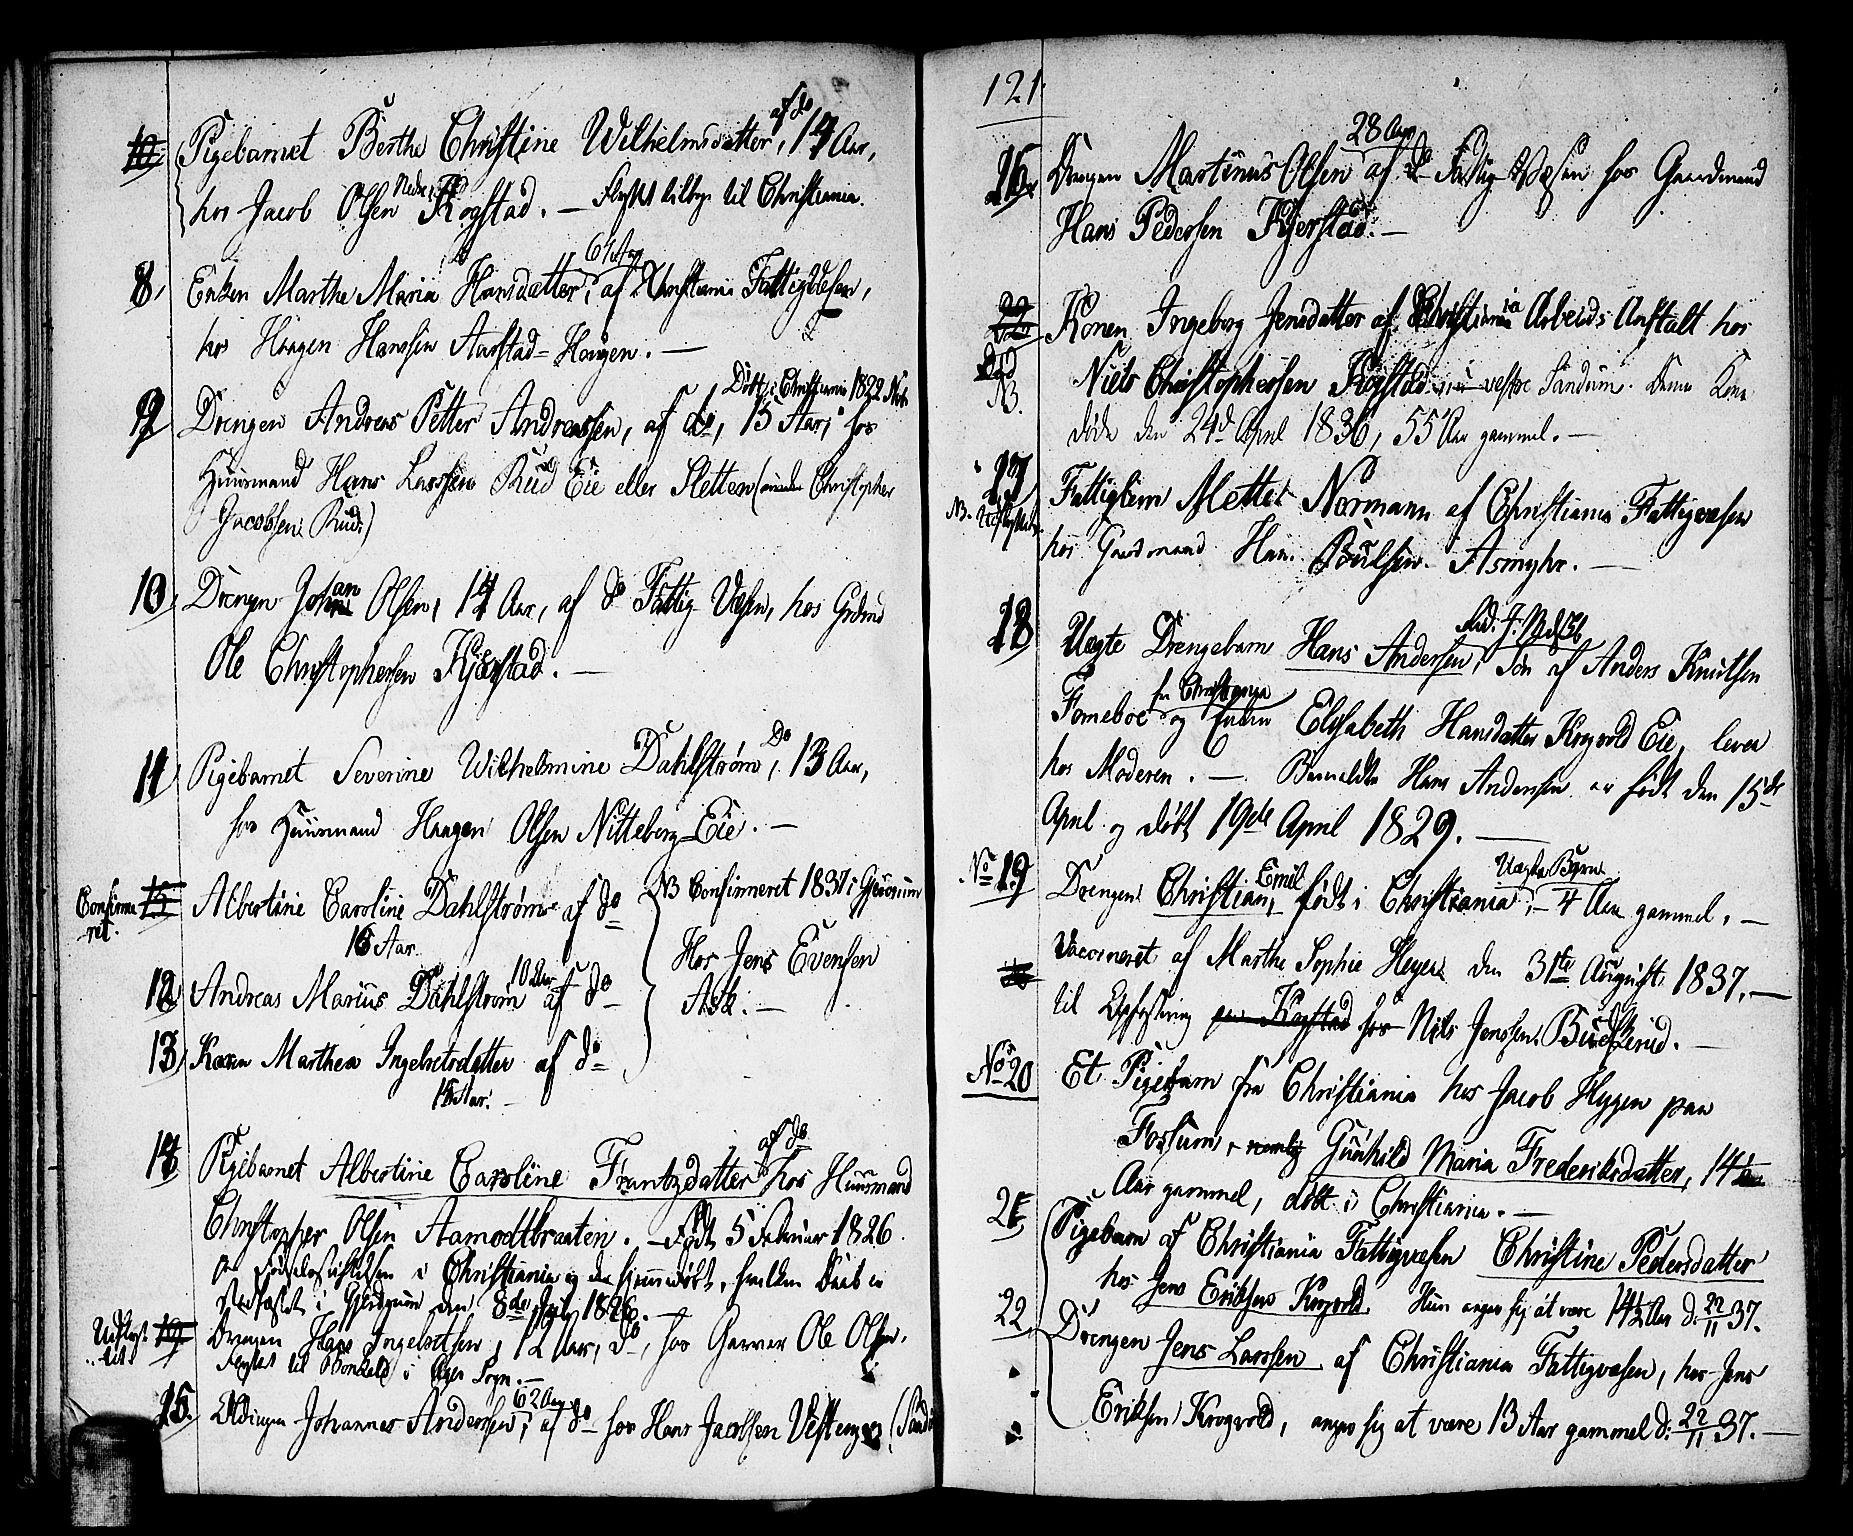 10, Pigebarnet Berthe Christine Wilhelmsdatter, af do 14 Aar,
hos Jacob Olsen Nedre Kogstad. — Flyttet tilbage til Christiania.
8, Enken Marthe Maria Hansdatter, af Christiania Fattigvæsen,
hos Haagen Hanssen Aarstad-Haugen. —
Døbt i Christiania 1822
9, Drengen Andreas Petter Andreassen, af do, 15 Aar, hos
Huusmand Hans Larssen Rud Eie eller Sletten ( Christopher
Jacobsen Rud.)
10, Drengen Johan Olsen, 14 Aar, af do Fattig Væsen, hos Grdmd
Ole Christophersen Kjærstad. —
11, Pigebarnet Severine Wilhelmine Dahlstrøm, Do 13 Aar,
hos Huusmand Haagen Olsen Nitteberg-Eie. —
Confirmeret. 15 Albertine Caroline Dahlstrøm af do NB Confirmeret 1837 i Gjerdrum
16 Aar. Hos Jens Evensen
12, Andreas Marius Dahlstrøm af do 10 Aar Ask. —
13, Karen Marthea Ingebretsdatter af do
15 Aar. —
14, Pigebarnet Albertine Caroline Frantzdatter af do hos Huusmand
Christopher Olsen Aamodtbraaten. — Født 5 Februar 1826
i Fødselsstiftelsen i Christiania og der hjemmedøbt, hvilken Daab er
stadfæstet i Gjerdrum den 8de July 1826. —
Udflyttet. 19, Drengen Hans Ingebretsen, 12 Aar, do, hos Garver Ole Olsen,
flyttet til i Sogn. —
15. Oldingen Johannes Anderssen, 62 Aar af do hos Hans Jacobsen Vestengen
121.
28 Aar
16, Drengen Martinus Olsen af do Fattig-Væsen hos Gaardmand
Hans Pedersen Kjerstad. —
22 Konen Ingeborg Jensdatter af Christiania Arbeids Anstalt hos
Død Niels Christophersen Kogstad nu vestre Sandum. Denne Kone
NB. døde den 24de April 1836, 55 Aar gammel. —
17, Fattiglem Mette Normann af Christiania Fattigvæsen
NB. Udflyttet hos Gaardmand Hans Poulsen Asmyhr. —
18, Uægte Drengebarn Hans Andersen, Søn af Anders Knudsen
Forneboe fra Christiania og Enken Elisabeth Hansdatter Krogvold Eie, lever
hos Moderen. — Bemeldte Hans Andersen er født den 15de
April og døbt 19de April 1829. —
No 19 Drengen Christian Emil, født i Christiania, Uægte Barn — 4 Aar gammel, —
Vaccineret af Marthe Sophie Heyer den 31te August 1837. —
til Opfostring paa Kogstad hos Nils Jenssen Budskerud. —
No 20 Et Pigebarn fra Christiania hos Jacob Hygen paa
Fossum, nemlig Gunhild Maria Frederiksdatter, 14
Aar gammel, døbt i Christiania. —
21, Pigebarn af Christiania Fattigvæsen Christine Pedersdatter
hos Jens Eriksen Krogvold. Hun angav sig at være 14½ Aar d. 22/11 37.
22, Drengen Jens Larssen af Christiania Fattigvæsen, hos Jens
Eriksen Krogvold, angav sig at være 13 Aar gammel d. 22/11 37. —